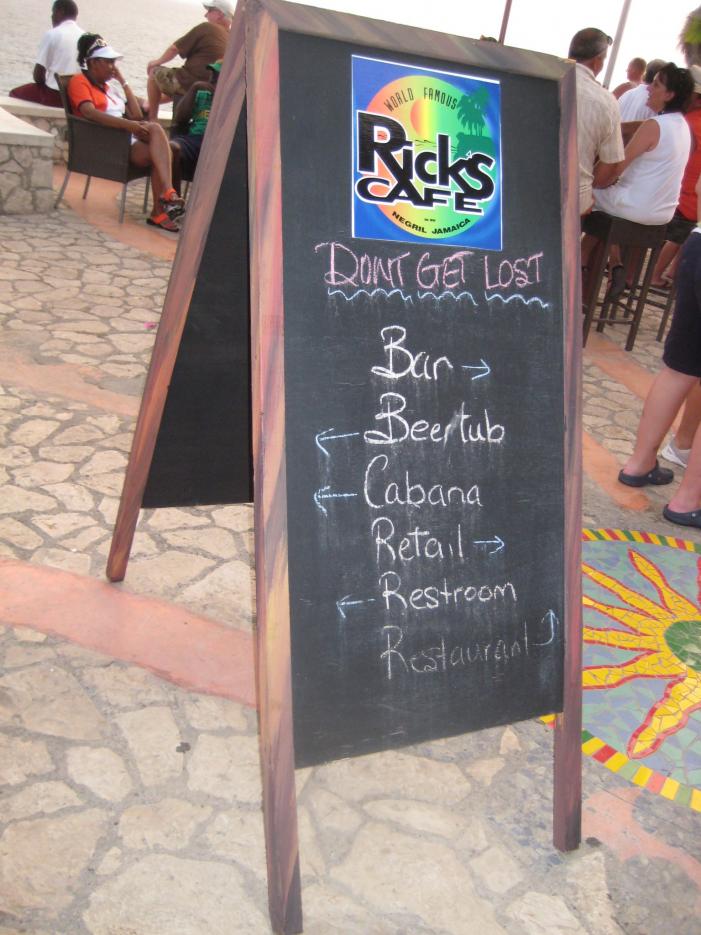 WORLD FAMOUS
Rick's
CAFE
NEGRIL JAMAICA
DONT GET LOST
Bar →
← Beertub
← Cabana
Retail →
← Restroom
Restaurant ↑